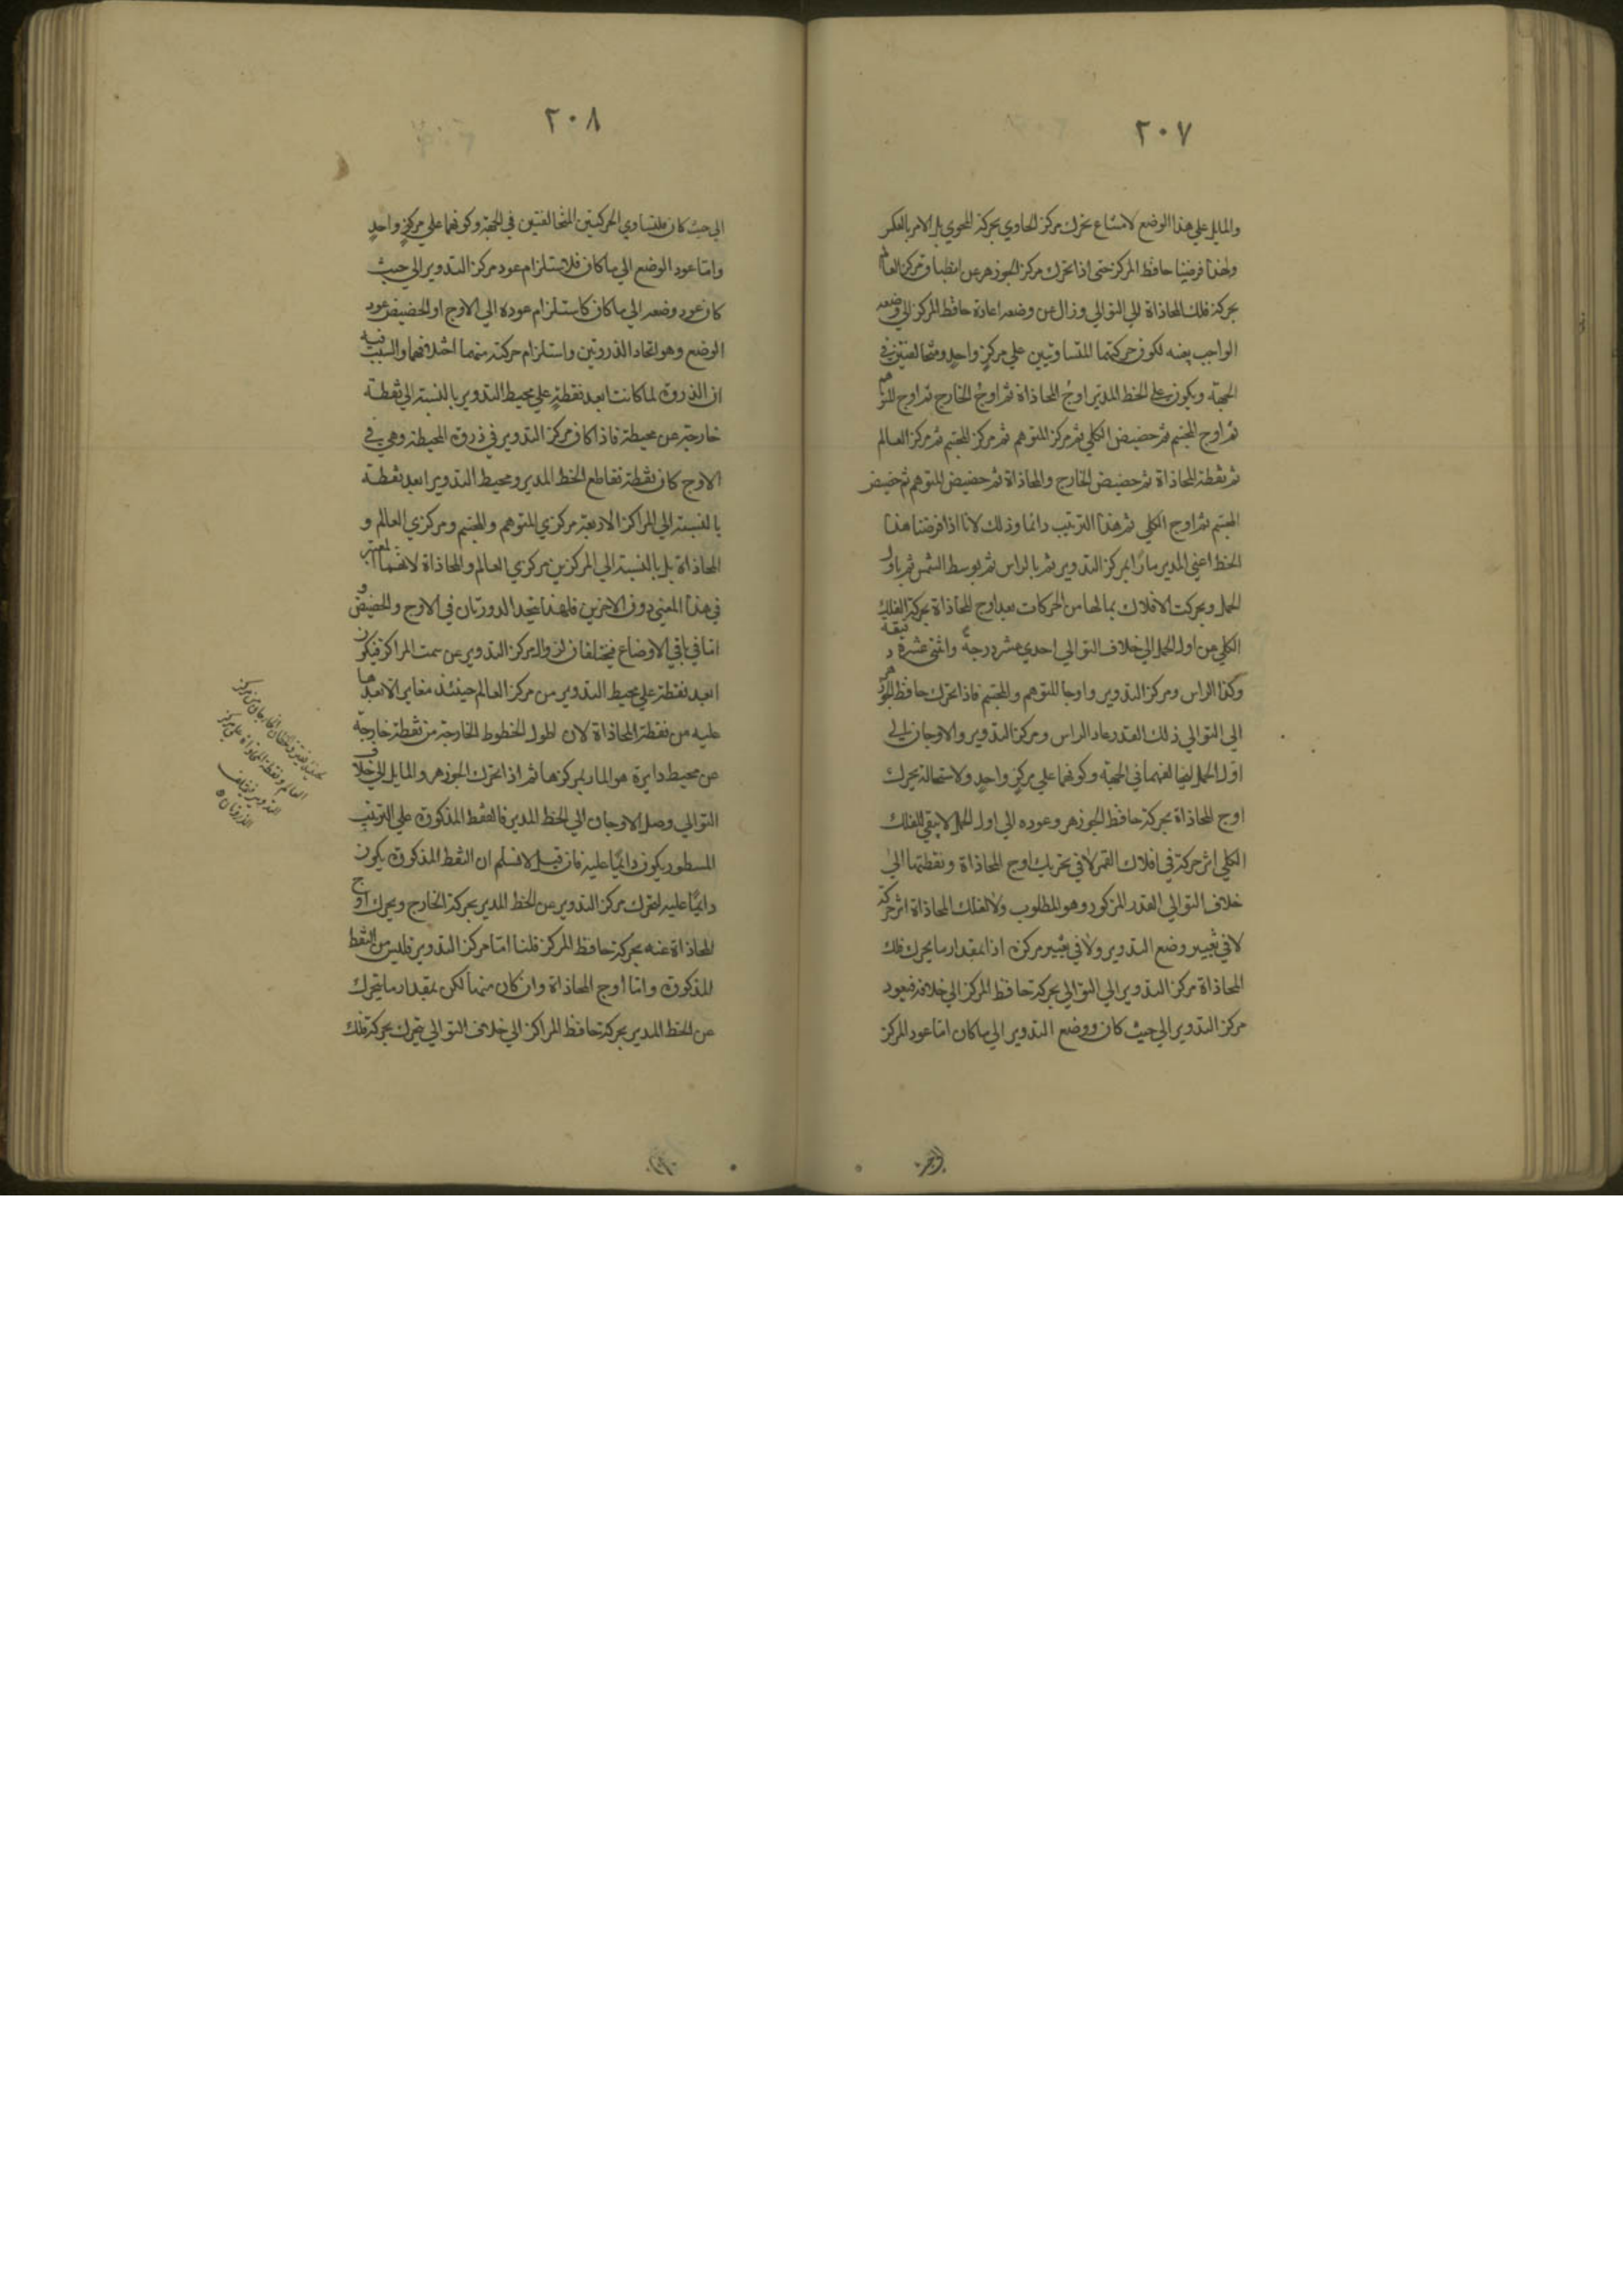 ٢٠٧
والمايل على هذا الوضع لامتناع تحرك مركز الحاوي بحركة المحوي بل الامر بالعكس
ولهذا فرضنا حافظ المركز حتى اذا تحرك مركز الجوزهر عن انطباق مركز العالم
بحركة فلك المحاذاة الي التوالي وزال عن وضعه اعاده حافظ المركز الي وضعه
الواجب لكون حركتهما المتساويتين علي مركزٍ واحدٍ ومتخالفتين في
الجهة ويكون علي الخط المدير اوج المحاذاة ثم اوج الخارج ثم اوج المتوهم
ثم اوج المجسم ثم حضيض الكلي ثم مركز المتوهم ثم مركز المجسم ثم مركز العالم
ثم نقطة المحاذاة ثم حضيض الخارج والمحاذاة ثم حضيض المتوهم ثم حضيض
المجسم ثم اوج الكلي ثم هذا الترتيب دائما وذلك لانا اذا فرضنا هذا
الخط اعني المدير مارًا بمركز التدوير ثم بالراس ثم بوسط الشمس ثم باول
الحمل وتحركت الافلاك بمالها من الحركات بعد اوج المحاذاة بحركة الفلك
الكلي من اول الحمل الي خلاف التوالي احدي عشر درجة واثني عشرة دقيقة
وكذا الراس ومركز التدوير واوجا المتوهم والمجسم فاذا تحرك حافظ الجوزهر
الي التوالي ذلك القدر عاد الراس ومركز التدوير والاوجان الي
اول الحمل لتخالفهما في الجهة وكونهما علي مركزٍ واحدٍ ولاستحالة تحرك
اوج المحاذاة بحركة حافظ الجوزهر وعوده الي اول الحمل لا يبقي للفلك
الكلي اثر حركة في افلاك القمر الا في تحريك اوج المحاذاة ونقطتها الي
خلاف التوالي القدر المذكور وهو المطلوب ولا لفلك المحاذاة اثر حركة
لا في تغيير وضع التدوير ولا في تغيير مركزه اذ بمقدار ما يحرك فلك
المحاذاة مركز التدوير الي التوالي بحركة حافظ المركز الي خلافه فيعود
مركز التدوير الي حيث كان ووضع التدوير الي ما كان اما عود المركز
٢٠٨
الي حيث كان فلتساوي الحركتين المتخالفتين في الجهة وكونهما علي مركزٍ واحدٍ
واما عود الوضع الي ما كان فلاستلزام عود مركز التدوير الي حيث
كان عود وضعه الي ما كان كاستلزام عوده الي الاوج او الحضيض عود
الوضع وهو اتحاد الذروتين واستلزام حركته منهما اختلافهما والسبب فيه
ان الذروة لما كانت ابعد نقطةٍ علي محيط التدوير بالنسبة الي نقطة
خارجة عن محيطه فاذا كان مركز التدوير في ذروة المحيطة وهي في
الاوج كان نقطة تقاطع الخط المدير ومحيط التدوير ابعد نقطة
بالنسبة الي المراكز الاربعة مركزي المتوهم والمجسم ومركزي العالم و
المحاذاة بل بالنسبة الي المركزين مركزي العالم والمحاذاة لانهما المعتبر
في هذا المعني دون الاخرين فلهذا يتحد الذروتان في الاوج والحضيض و
اما في باقي الاوضاع فيختلفان لزوال مركز التدوير عن سمت المراكز فيكون
ابعد نقطة علي محيط التدوير من مركز العالم حينئذ مغاير الابعدها
عليه من نقطة المحاذاة لان اطول الخطوط الخارجة من نقطة خارجة
عن محيط دايرة هو المار بمركزها ثم اذا تحرك الجوزهر والمايل الي خلاف
التوالي وصل الاوجان الي الخط المدير فالنقط المذكورة علي الترتيب
المسطور يكون دائمًا عليه فان قيل لا نسلم ان النقط المذكورة يكون
دائمًا عليه لتحرك مركز التدوير عن الخط المدير بحركة الخارج وتحرك اوج
المحاذاة عنه بحركة حافظ المركز قلنا اما مركز التدوير فليس من النقط
المذكورة واما اوج المحاذاة وان كان منها لكن بمقدار ما يتحرك
عن الخط المدير بحركة حافظ المراكز الي خلاف التوالي يتحرك بحركة فلك
الخطان الخارجان من مركز
العالم ونقطة المحاذاة علي مركز
التدوير فيختلف
الذروتان